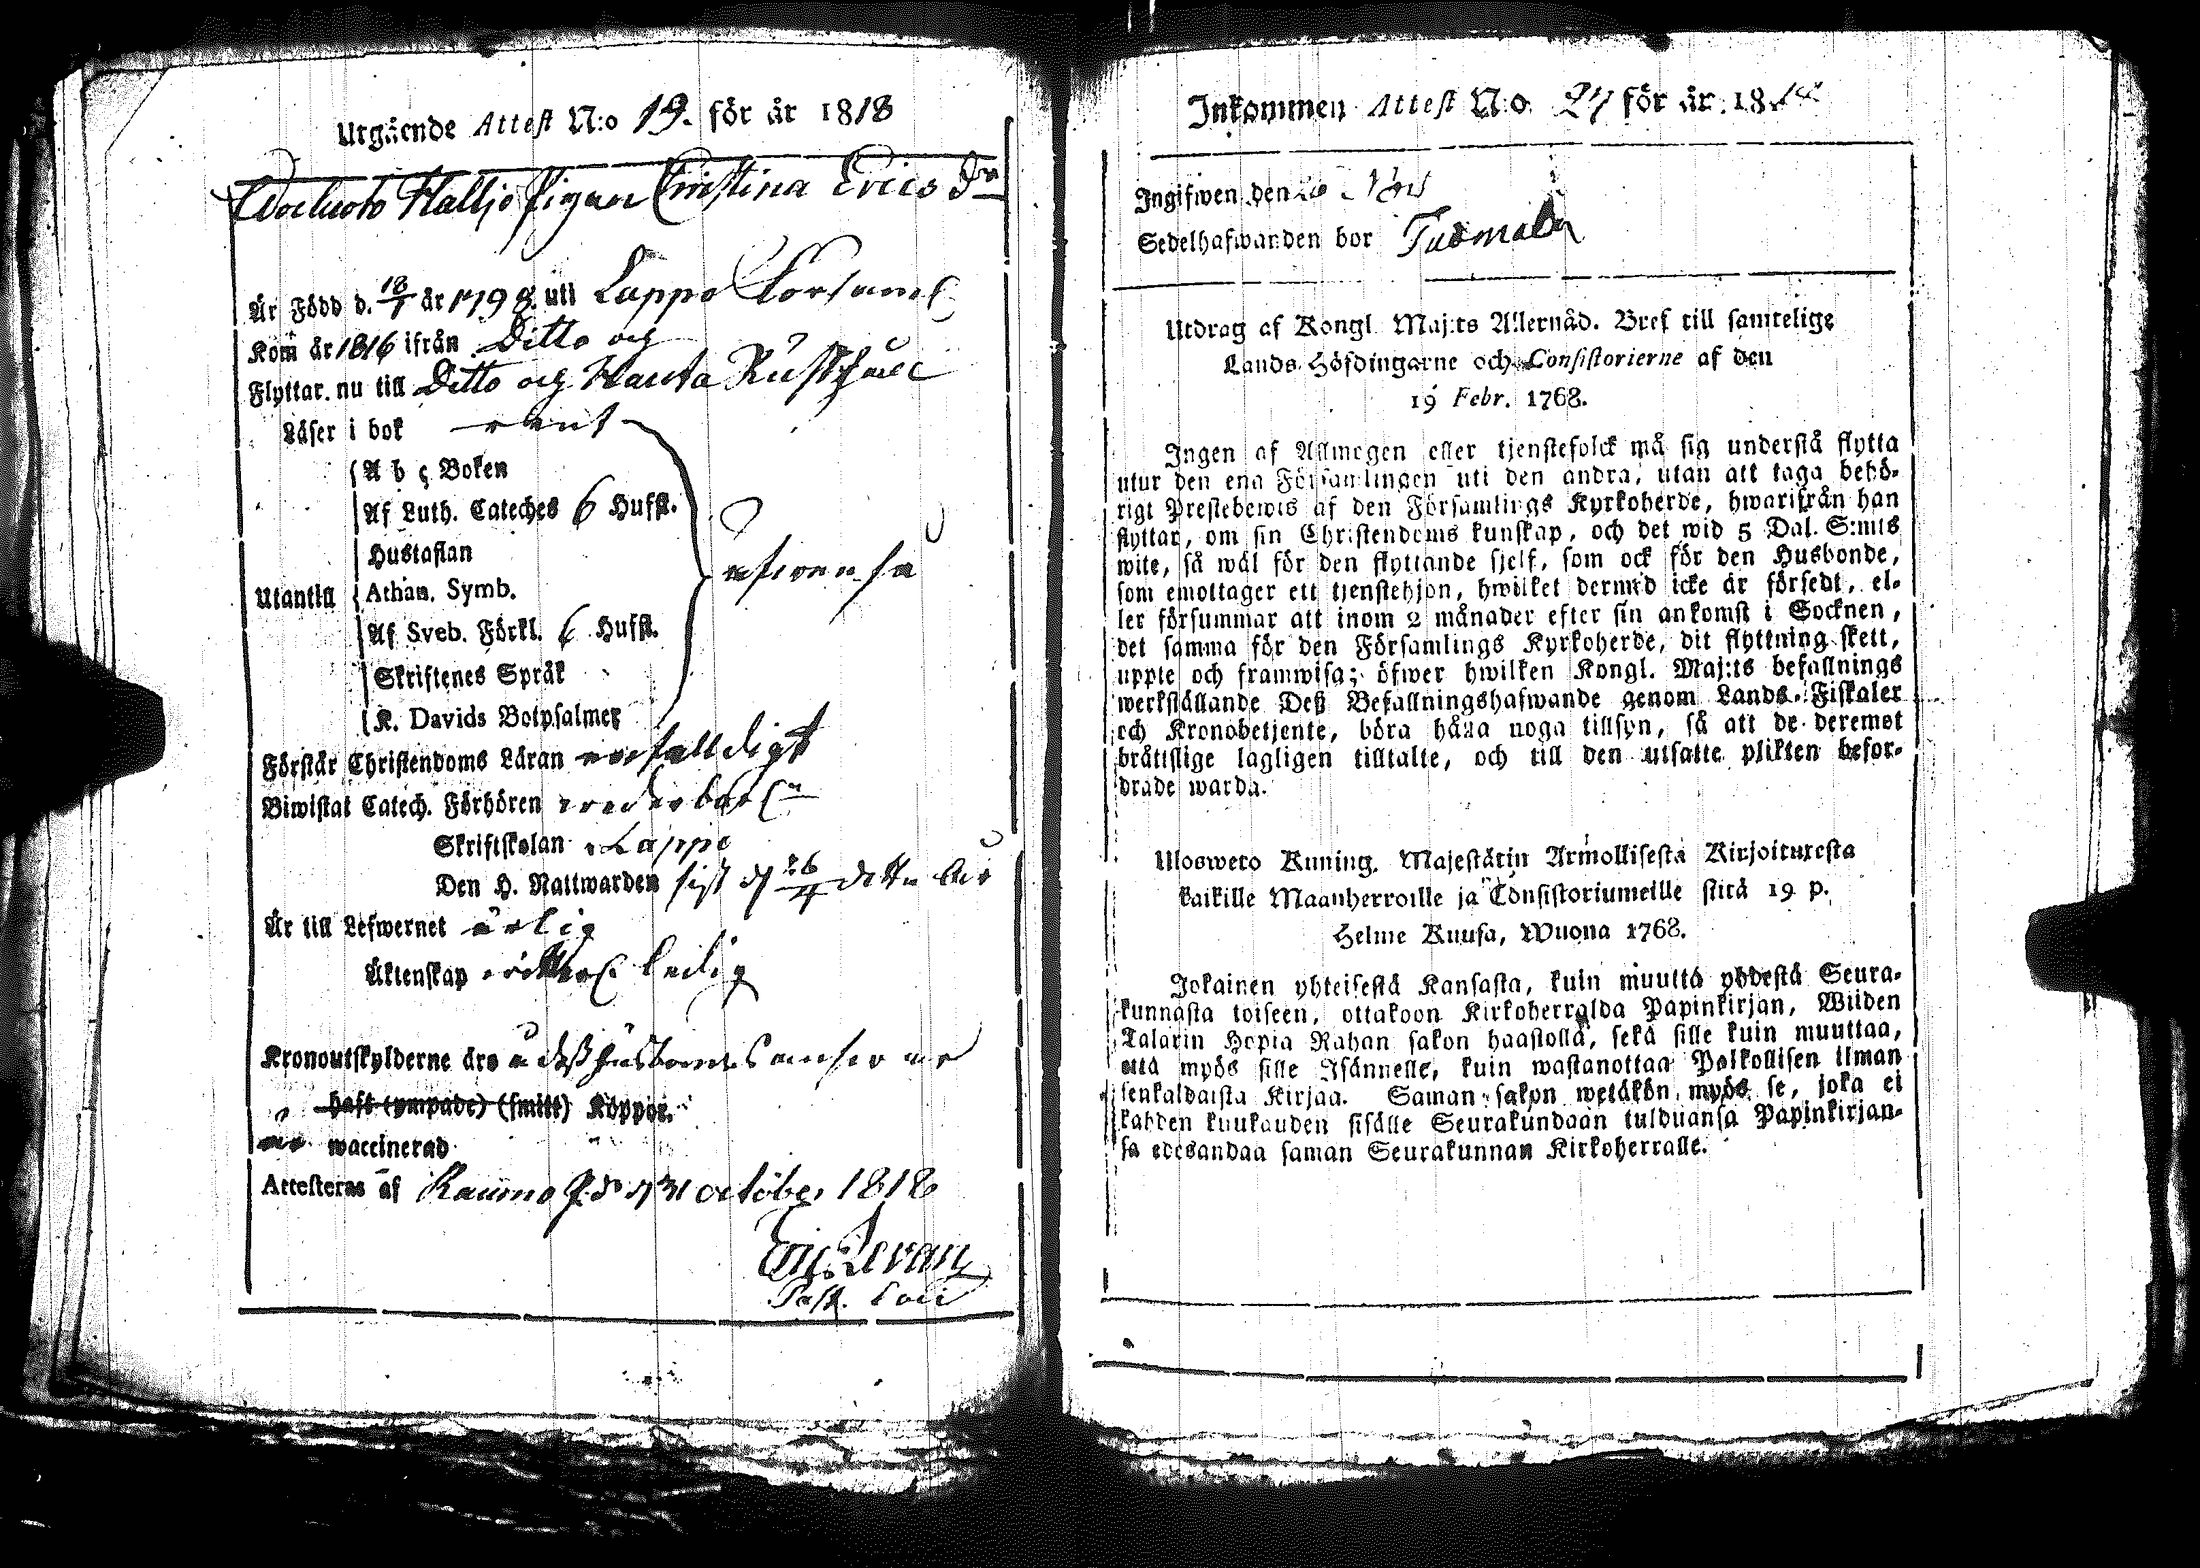 Utgående Attest N:o 19. för år 1818
Pigan Christina Erics Dr
Är Född d. 18/7 år 1798 uti Lappo Forsaml
Kom år 1816 ifrån Ditto og
Flyttar nu till Ditto og Hauta Rusthåll
Läser i bok rent
A b c Boken
Af Luth. Cateches 6 Hufst.
Hustaflan
Utantill Athan. Symb.
Af Sveb. Förkl. 6 Hufst.
Skriftenes Språk
K. Davids Botpsalmer
Förstår Christendoms Läran enfalldigt
Biwistat Catech. Förhören
Skriftskolan Lappo
Den H. Nattwarden sist d 26/4 detta år
Är till Lefwernet ärlig
Äktenskap ledig
Kronoutskylderne äro
haft (ympade) (smitt) Koppor.
är waccinerad
Attesteras af Raumo d 31 october 1818
Eric Levan
Past. Loci
Inkommen Attest N:o 27 för år 1818
Ingifwen den Nov
Sedelhafwanden bor
Utdrag af Kongl. Maj:ts Allernåd. Bref till samtelige
Lands Höfdingarne och Consistorierne af den
19 Febr. 1768.
Ingen af Allmogen eller tjenstefolck må sig understå flytta
utur den ena Församlingen uti den andra, utan att taga behö-
rigt Prestebewis af den Församlings Kyrkoherde, hwarifrån han
flyttar, om sin Christendoms kunskap, och det wid 5 Dal. S:mts
wite, så wäl för den flyttande sjelf, som ock för den Husbonde,
som emottager ett tjenstehjon, hwilket dermed icke är försedt, el-
ler försummar att inom 2 månader efter sin ankomst i Socknen,
det samma för den Församlings Kyrkoherde, dit flyttning skett,
uppte och framwisa; öfwer hwilken Kongl. Maj:ts befallnings
werkställande Deß Befallningshafwande genom Lands-Fiskaler
och Kronobetjente, böra hålla noga tillsyn, så att de deremot
bråtislige lagligen tilltalte, och till den utsatte plikten befor-
drade warda.
Ulosweto Kuning. Majestätin Armollisesta Kirjoituxesta
kaikille Maanherroille ja Consistoriumeille siitä 19 p.
Helme Kuusa, Wuona 1768.
Jokainen yhteisestä Kansasta, kuin muutta yhdestä Seura-
kunnasta toiseen, ottakoon Kirkoherralda Papinkirjan, Wiiden
Talarin Hopia Rahan sakon haastolla, sekä sille kuin muuttaa,
että myös sille Isännelle, kuin wastanottaa Palkollisen ilman
senkaldaista Kirjaa. Saman sakon wetäkön myös se, joka ei
kahden kuukauden sisälle Seurakundaan tulduansa Papinkirjan-
sa edesandaa saman Seurakunnan Kirkoherralle.